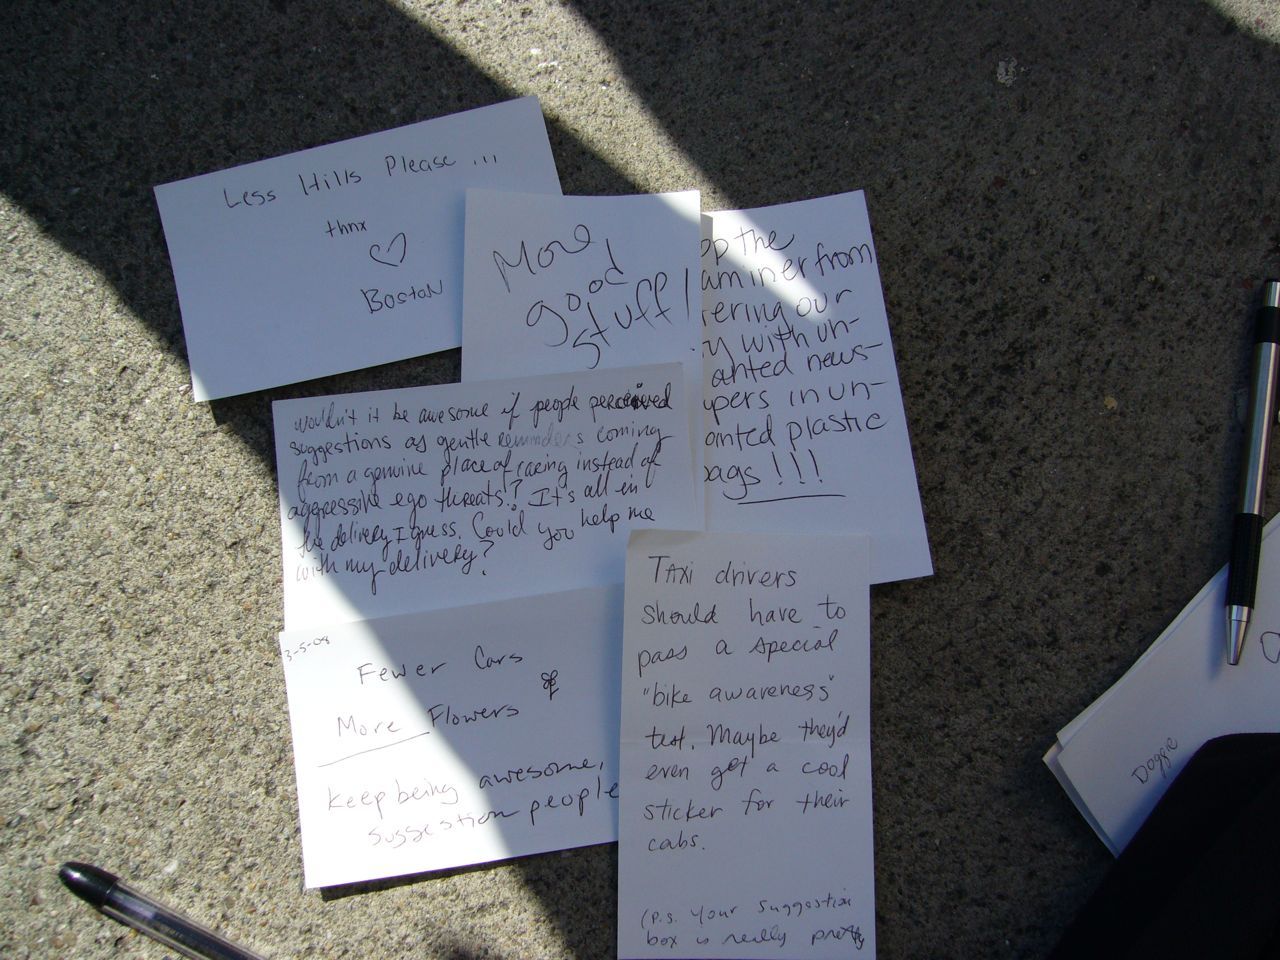 Less Hills Please...
thnx
♡
Boston
More
good
stuff!
op the
aminer from
ering our
y with un-
anted news-
pers in un-
anted plastic
bags!!!
Wouldn't it be awesome if people perceived
suggestions as gentle reminders coming
from a genuine place of caring instead of
aggressive ego threats? It's all in
the delivery I guess. Could you help me
with my delivery?
3-5-08
Fewer Cars
More Flowers
Keep being awesome,
suggestion people
Taxi drivers
should have to
pass a special
"bike awareness"
test. Maybe they'd
even get a cool
sticker for their
cabs.
(P.S. Your suggestion
box is really pretty
Doggie